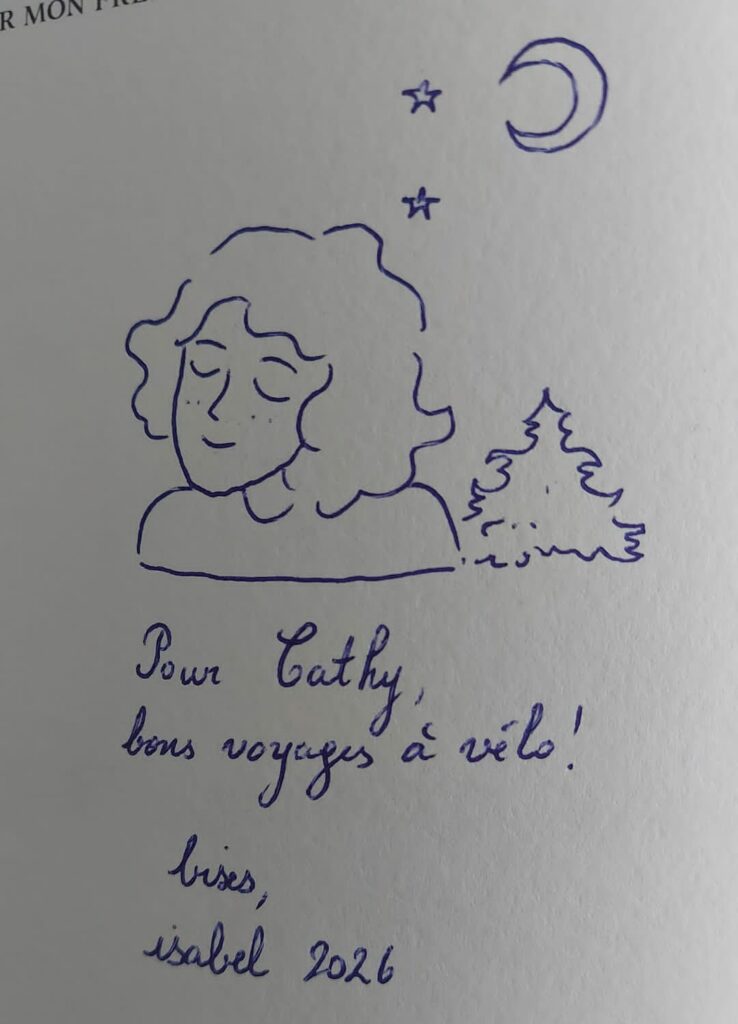 R MON FRÈ
Pour Cathy,
bons voyages à vélo!
bises,
isabel 2026